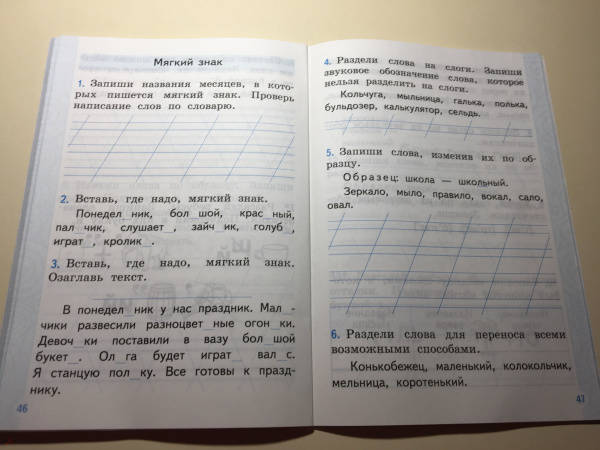 Мягкий знак
1. Запиши названия месяцев, в кото-
рых пишется мягкий знак. Проверь
написание слов по словарю.
2. Вставь, где надо, мягкий знак.
Понедел_ник, бол_шой, крас_ный,
пал_чик, слушает_, зайч_ик, голуб_,
играт_, кролик_.
3. Вставь, где надо, мягкий знак.
Озаглавь текст.
В понедел_ник у нас праздник. Мал_-
чики развесили разноцвет_ные огон_ки.
Девоч_ки поставили в вазу бол_шой
букет_. Ол_га будет играт_ вал_с.
Я станцую пол_ку. Все готовы к празд-
нику.
46
4. Раздели слова на слоги. Запиши
звуковое обозначение слова, которое
нельзя разделить на слоги.
Кольчуга, мыльница, галька, полька,
бульдозер, калькулятор, сельдь.
5. Запиши слова, изменив их по об-
разцу.
Образец: школа — школьный.
Зеркало, мыло, правило, вокал, сало,
овал.
6. Раздели слова для переноса всеми
возможными способами.
Конькобежец, маленький, колокольчик,
мельница, коротенький.
47